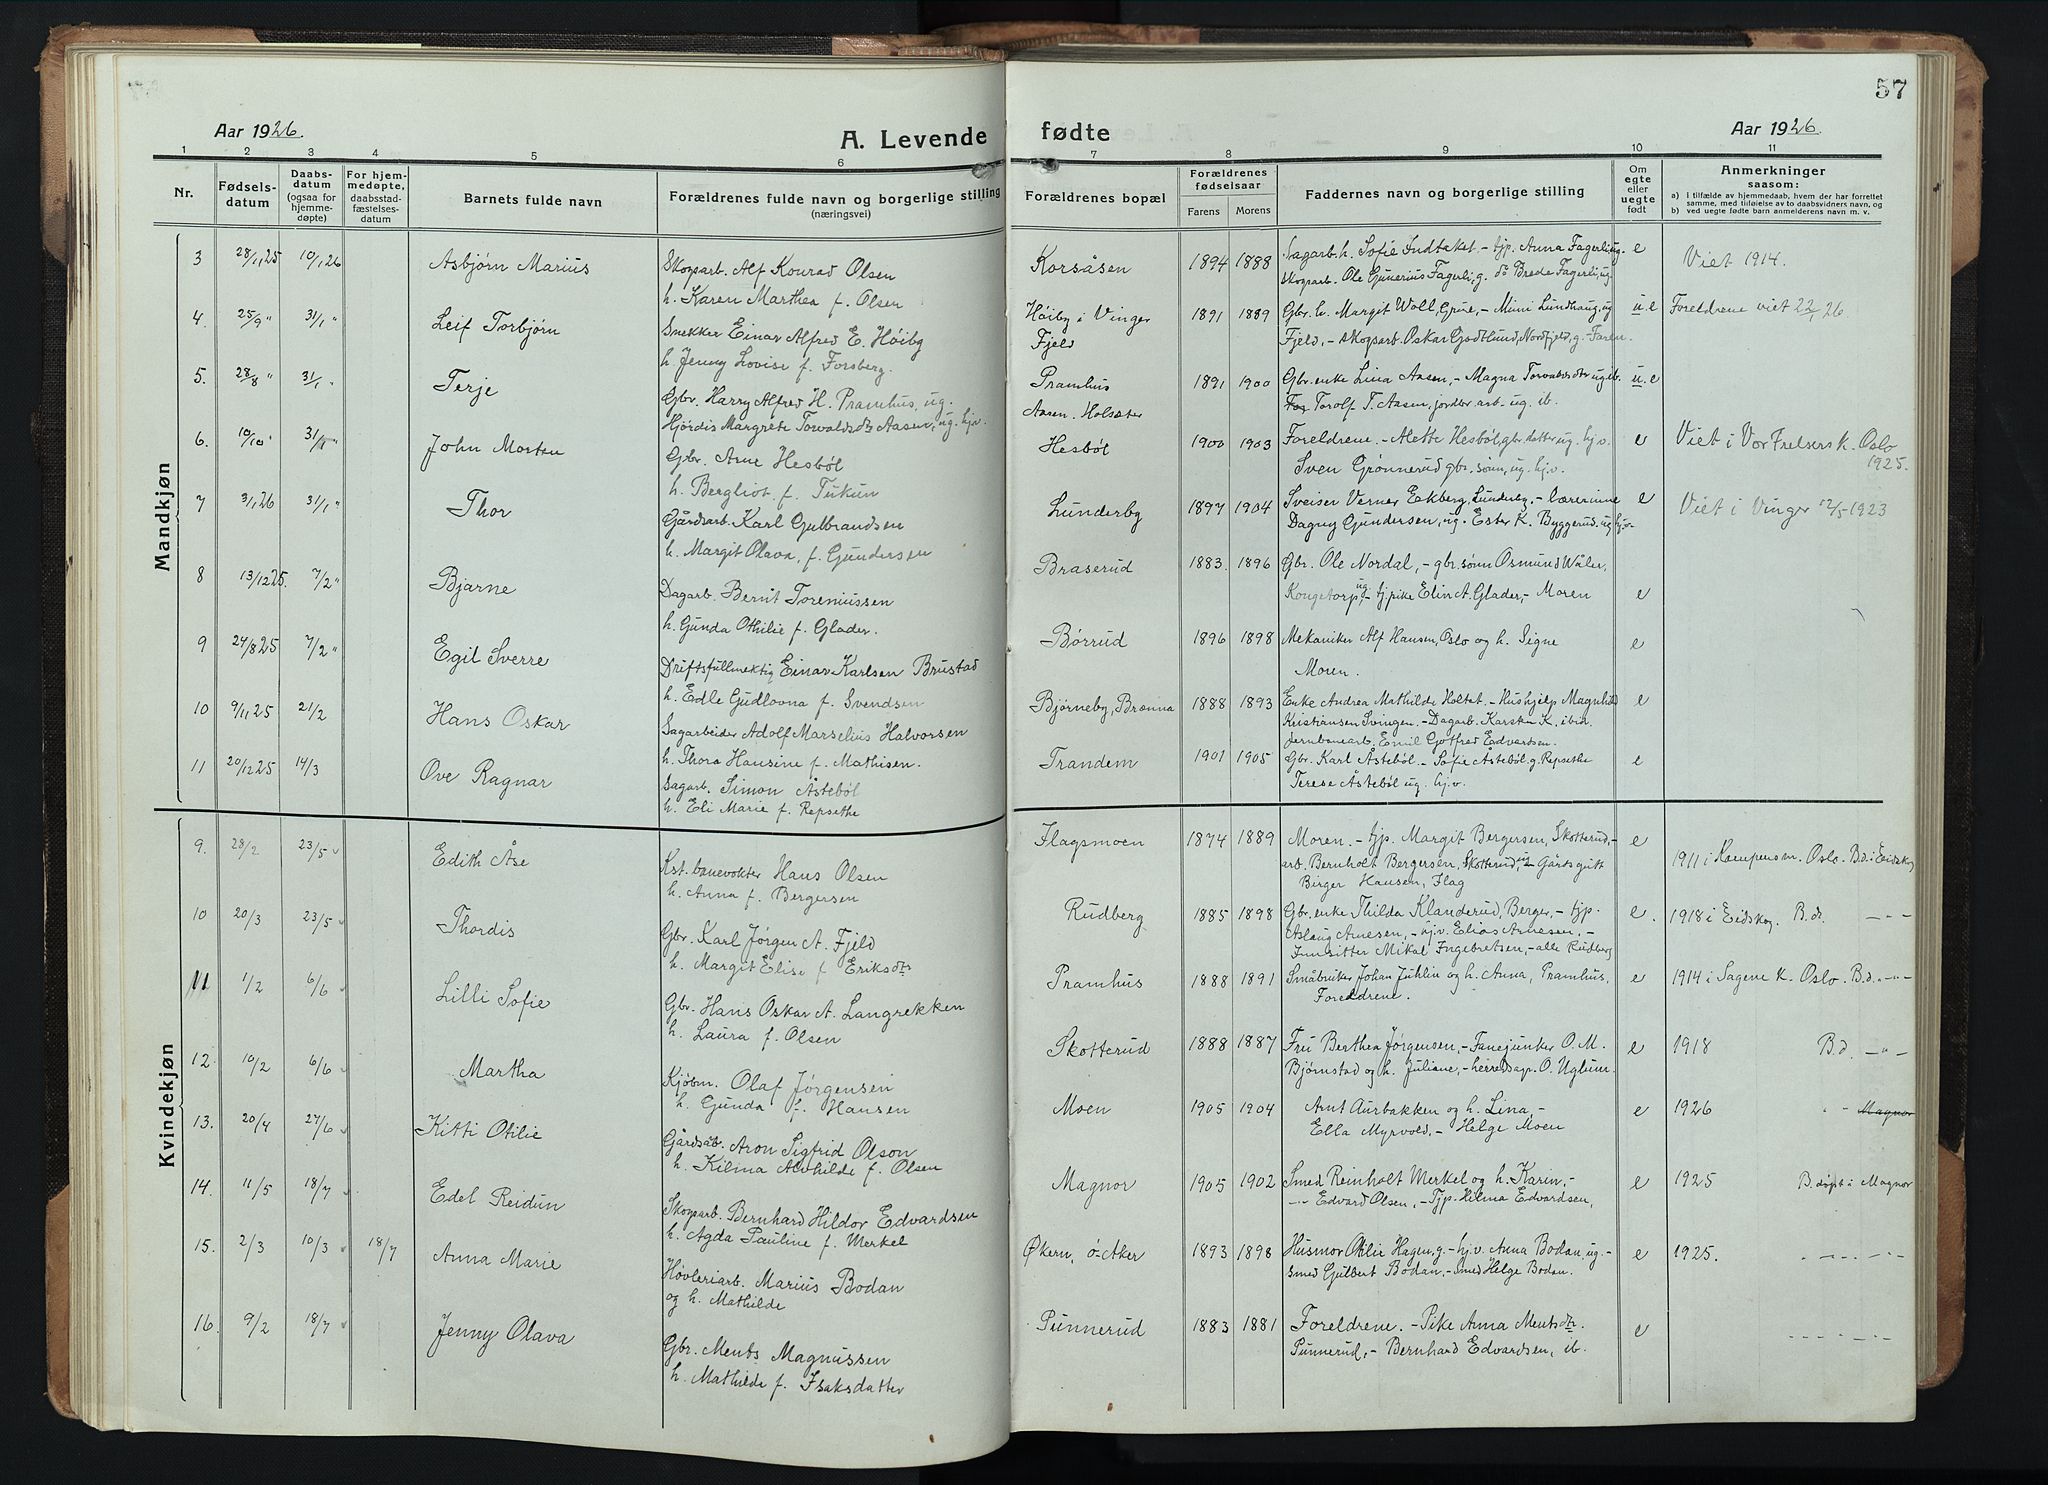 57
Aar 1926.
A. Levende
fødte
Aar 1926.
1 2 3 4 5 6 7 8 9 10 11
Nr.
Fødselsdatum
Daabsdatum (ogsaa for hjemmedøpte)
For hjemmedøpte, daabsstadfæstelsesdatum
Barnets fulde navn
Forældrenes fulde navn og borgerlige stilling
(næringsvei)
Forældrenes bopæl
Forældrenes fødselsaar
Farens Morens
Faddernes navn og borgerlige stilling
Om egte eller uegte født
Anmerkninger
saasom:
a) I tilfælde af hjemmedaab, hvem der har forrettet samme, med tilføielse av to daabsvidners navn, og
b) ved uegte fødte barn anmelderens navn m. v.
Mandkjøn
3 28/1,25 10/1,26 Asbjørn Marius Skogsarb. Alf Konrad Olsen Korsåsen 1894 1888 Sagarb. h. Sofie Indtaket - tjp. Anna Fagerli, ug. e Viet 1914.
h. Karen Marthea f. Olsen Skogsarb. Ole Gunerius Fagerli, g. do Brede Fagerli, ug
4. 25/9 " 31/1 " Leif Torbjørn Snekker Einar Alfred E. Høiby Høiby i Vinger 1891 1889 Gbr. h. Margit Woll, Grue, - Mimi Lundhaug, ug u. e Foreldrene viet 22/1 26.
h. Jenny Lovise f. Forsberg. Fjeld Fjeld, - Skogsarb. Oskar Godtlund, Nordfjeld, g. - Faren.
5. 28/8 " 31/1 " Terje Gbr. Harry Alfred H. Pramhus, ug. Pramhus 1891 1900 Gbr. enke Lina Aasen, - Magna Torvaldsdtr ug. ib. u. e
Hjördis Margrete Torvaldsdtr Aasen, ug. hjv. Aasen. Holsæter Torolf T. Aasen, jordbr. arb - ug. ib.
6. 10/10 " 31/1 " John Morten Gbr. Arne Hesböl Hesböl 1900 1903 Foreldrene. - Alette Hesböl, gbr. datter ug. hj.v. e Viet i Vor Frelsers K. Oslo 1925.
h. Bergliot f. Tukun Sven Grönnerud gbr. sönn, ug. hj.v.
7 3/1,26 31/1 " Thor Gårdsarb. Karl Gulbrandsen Lunderby 1897 1904 Sveiser Verner Ekberg, Lunderby, - lærerinne e Viet i Vinger 12/5 1923
h. Margit Olava, f. Gundersen Dagny Gundersen, ug. Ester K. Byggerud, ug. hjv.
8 13/12 25. 7/2 " Bjarne Dagarb. Bernt Toreniussen Braserud 1883. 1896 Gbr. Ole Nordal, - gbr. sönn Osmund Wåler,
h. Gunda Othilie f. Glader. Kongetorp, ug - tj.pike Elin A. Glader, - Moren e
9 24/8 25 7/2 " Egil Sverre Driftsfullmektig Einar Karlsen Brustad Børrud 1896 1898 Mekaniker Alf Hansen, Oslo og h. Signe e
h. Edle Gudlovna f. Svendsen Moren.
10 9/11,25 21/2 Hans Oskar Sagarbeider Adolf Marselius Halvorsen Bjørneby, Brænna 1888 1893 Enke Andrea Mathilde Holtet - Hushjelp Magnhild e
h. Thora Hansine f. Mathisen. Kristiansen Svingen. - Dagarb. Karsten K. ibid.
Jernbanearb. Emil Gotfred Edvardsen.
11 20/12 25 14/3 Ove Ragnar Sagarb. Simon Åsteböl Trandem 1901 1905 Gbr. Karl Åsteböl - Sofie Åsteböl g. Repsethe e
h. Eli Marie f. Repsethe Terese Åsteböl ug. hj.v.
Kvindekjøn
9. 28/2 23/5 Edith Åse Kst. banevokter Hans Olsen Flagsmoen 1874 1889 Moren. - tjp. Margit Bergersen, Skotterud, - e 1911 i Kampens m. Oslo. B.d. i Eidskog
h. Anna f. Bergersen arb. Bernholt Bergersen, Skotterud, ug Gårdsgutt
Birger Hansen, Flag
10 20/3 23/5 Thordis Gbr. Karl Jørgen A. Fjeld Rudberg 1885 1898 Gbr. enke Thilda Klanderud, Berger, - tjp. e. 1918 i Eidskog. B.d. -"-
h. Margit Elise f. Eriksdtr Aslaug Arnesen, - hj.v. Elias Arnesen. -
Innsitter Mikal Ingebretsen, - alle Rudberg
11 1/2 6/6 Lilli Sofie Gbr. Hans Oskar A. Langrekken Pramhus 1888 1891 Småbruker Johan Juhlin og h. Anna, Pramhus, e 1914 i Sagene K. Oslo. B.d. -"-
h. Laura f. Olsen Foreldrene.
12 10/2 6/6 Martha Kjöbm. Olaf Jørgensen Skotterud 1888 1887 Fru Berthea Jørgensen, - Fanejunker O. M. e 1918 B.d. -"-
h. Gunda f. Hansen Bjørnstad og h. Juliane, -
13. 20/4 27/6 Kitti Otilie Gårdsarb. Aron Sigfrid Olson Moen 1905 1904 Arnt Aurbakken og h. Lina, - e 1926 " - Magnor
h. Kilma Alvhilde f. Olsen Ella Myrvold, - Helge Moen
14. 11/5 18/7 Edel Reidun Skogsarb. Bernhard Hildor Edvardsen Magnor 1905 1902 Smed Reinholt Merkel og h. Karin, - e 1925 B. døpt i Magnor
h. Agda Pauline f. Merkel -"- Edvard Olsen, - Tjp. Hilma Edvardsen,
15. 2/3 10/3 18/7 Anna Marie Høvleriarb. Marius Bodan Økern, Ö-Aker 1893 1898 Husmor Otilie Hagen, g. - hj.v. Anna Bodan, ug. - e 1925. -"-
og h. Mathilde Smed Gulbert Bodan, - Smed Helge Bodan.
16. 9/2 18/7 Jenny Olava Gbr. Ments Magnussen Punnerud 1883 1881 Foreldrene. - Pike Anna Mentsdtr. e -"-
h. Mathilde f. Isaksdatter Punnerud, - Bernhard Edvardsen, ib.